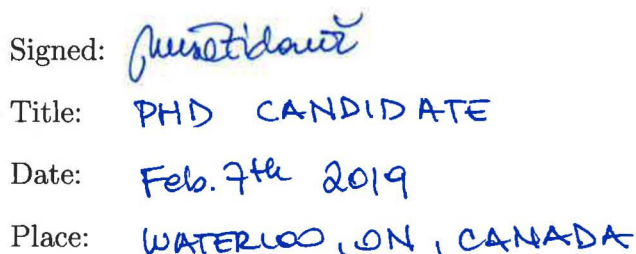 Signed:
Title: PHD CANDIDATE
Date: Feb. 7th 2019
Place: WATERLOO, ON, CANADA